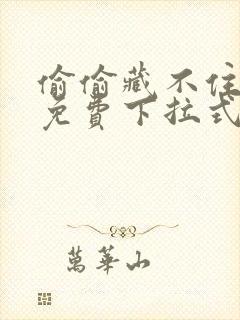 偷偷藏不住
免費下拉式
萬華山